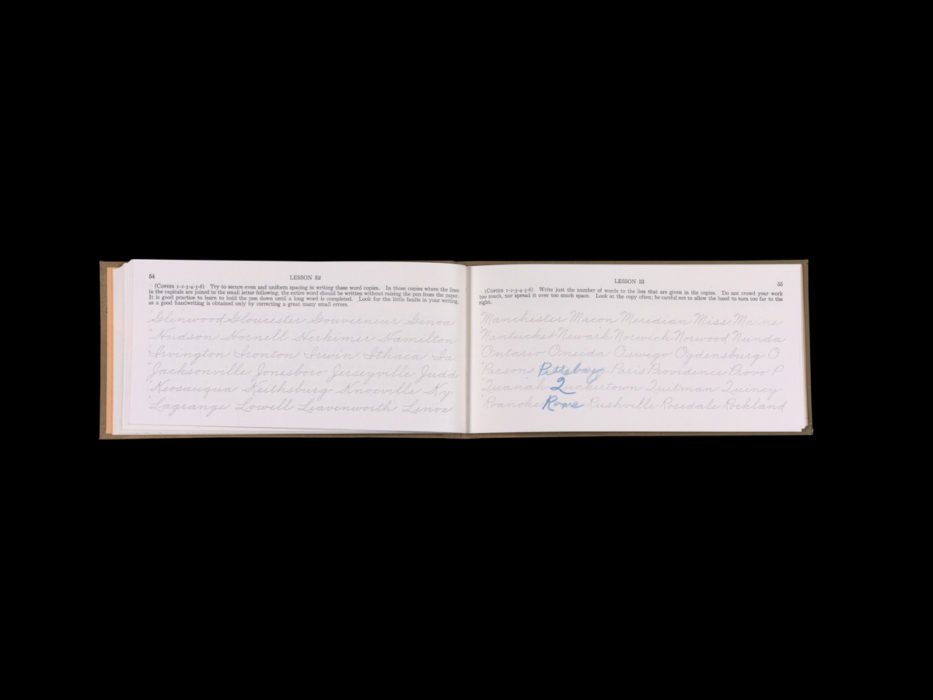 54
LESSON 52
(Copies 1-2-3-4-5-6) Try to secure even and uniform spacing in writing these word copies. In those copies where the lines
in the capitals are joined to the small letter following, the entire word should be written without raising the pen from the paper.
It is good practice to learn to hold the pen down until a long word is completed. Look for the little faults in your writing,
as a good handwriting is obtained only by correcting a great many small errors.
Glenwood Gloucester Gouverneur Genoa
Hudson Hornell Herkimer Hamilton
Irvington Ironton Irwin Ithaca Ia
Jacksonville Jonesboro Jerseyville Judd
Keosauqua Keithsburg Knoxville Ky
Lagrange Lowell Leavenworth Lenox
LESSON 53
55
(Copies 1-2-3-4-5-6) Write just the number of words to the line that are given in the copies. Do not crowd your work
too much, nor spread it over too much space. Look at the copy often; be careful not to allow the hand to turn too far to the
right.
Manchester Macon Meridian Miss Maine
Nantucket Newark Norwich Norwood Nunda
Ontario Oneida Oswego Ogdensburg O
Parsons Pittsburg Paris Providence Provo P
Quanah Quakertown Quitman Quincy
Roanoke Rome Rushville Rosedale Rockland